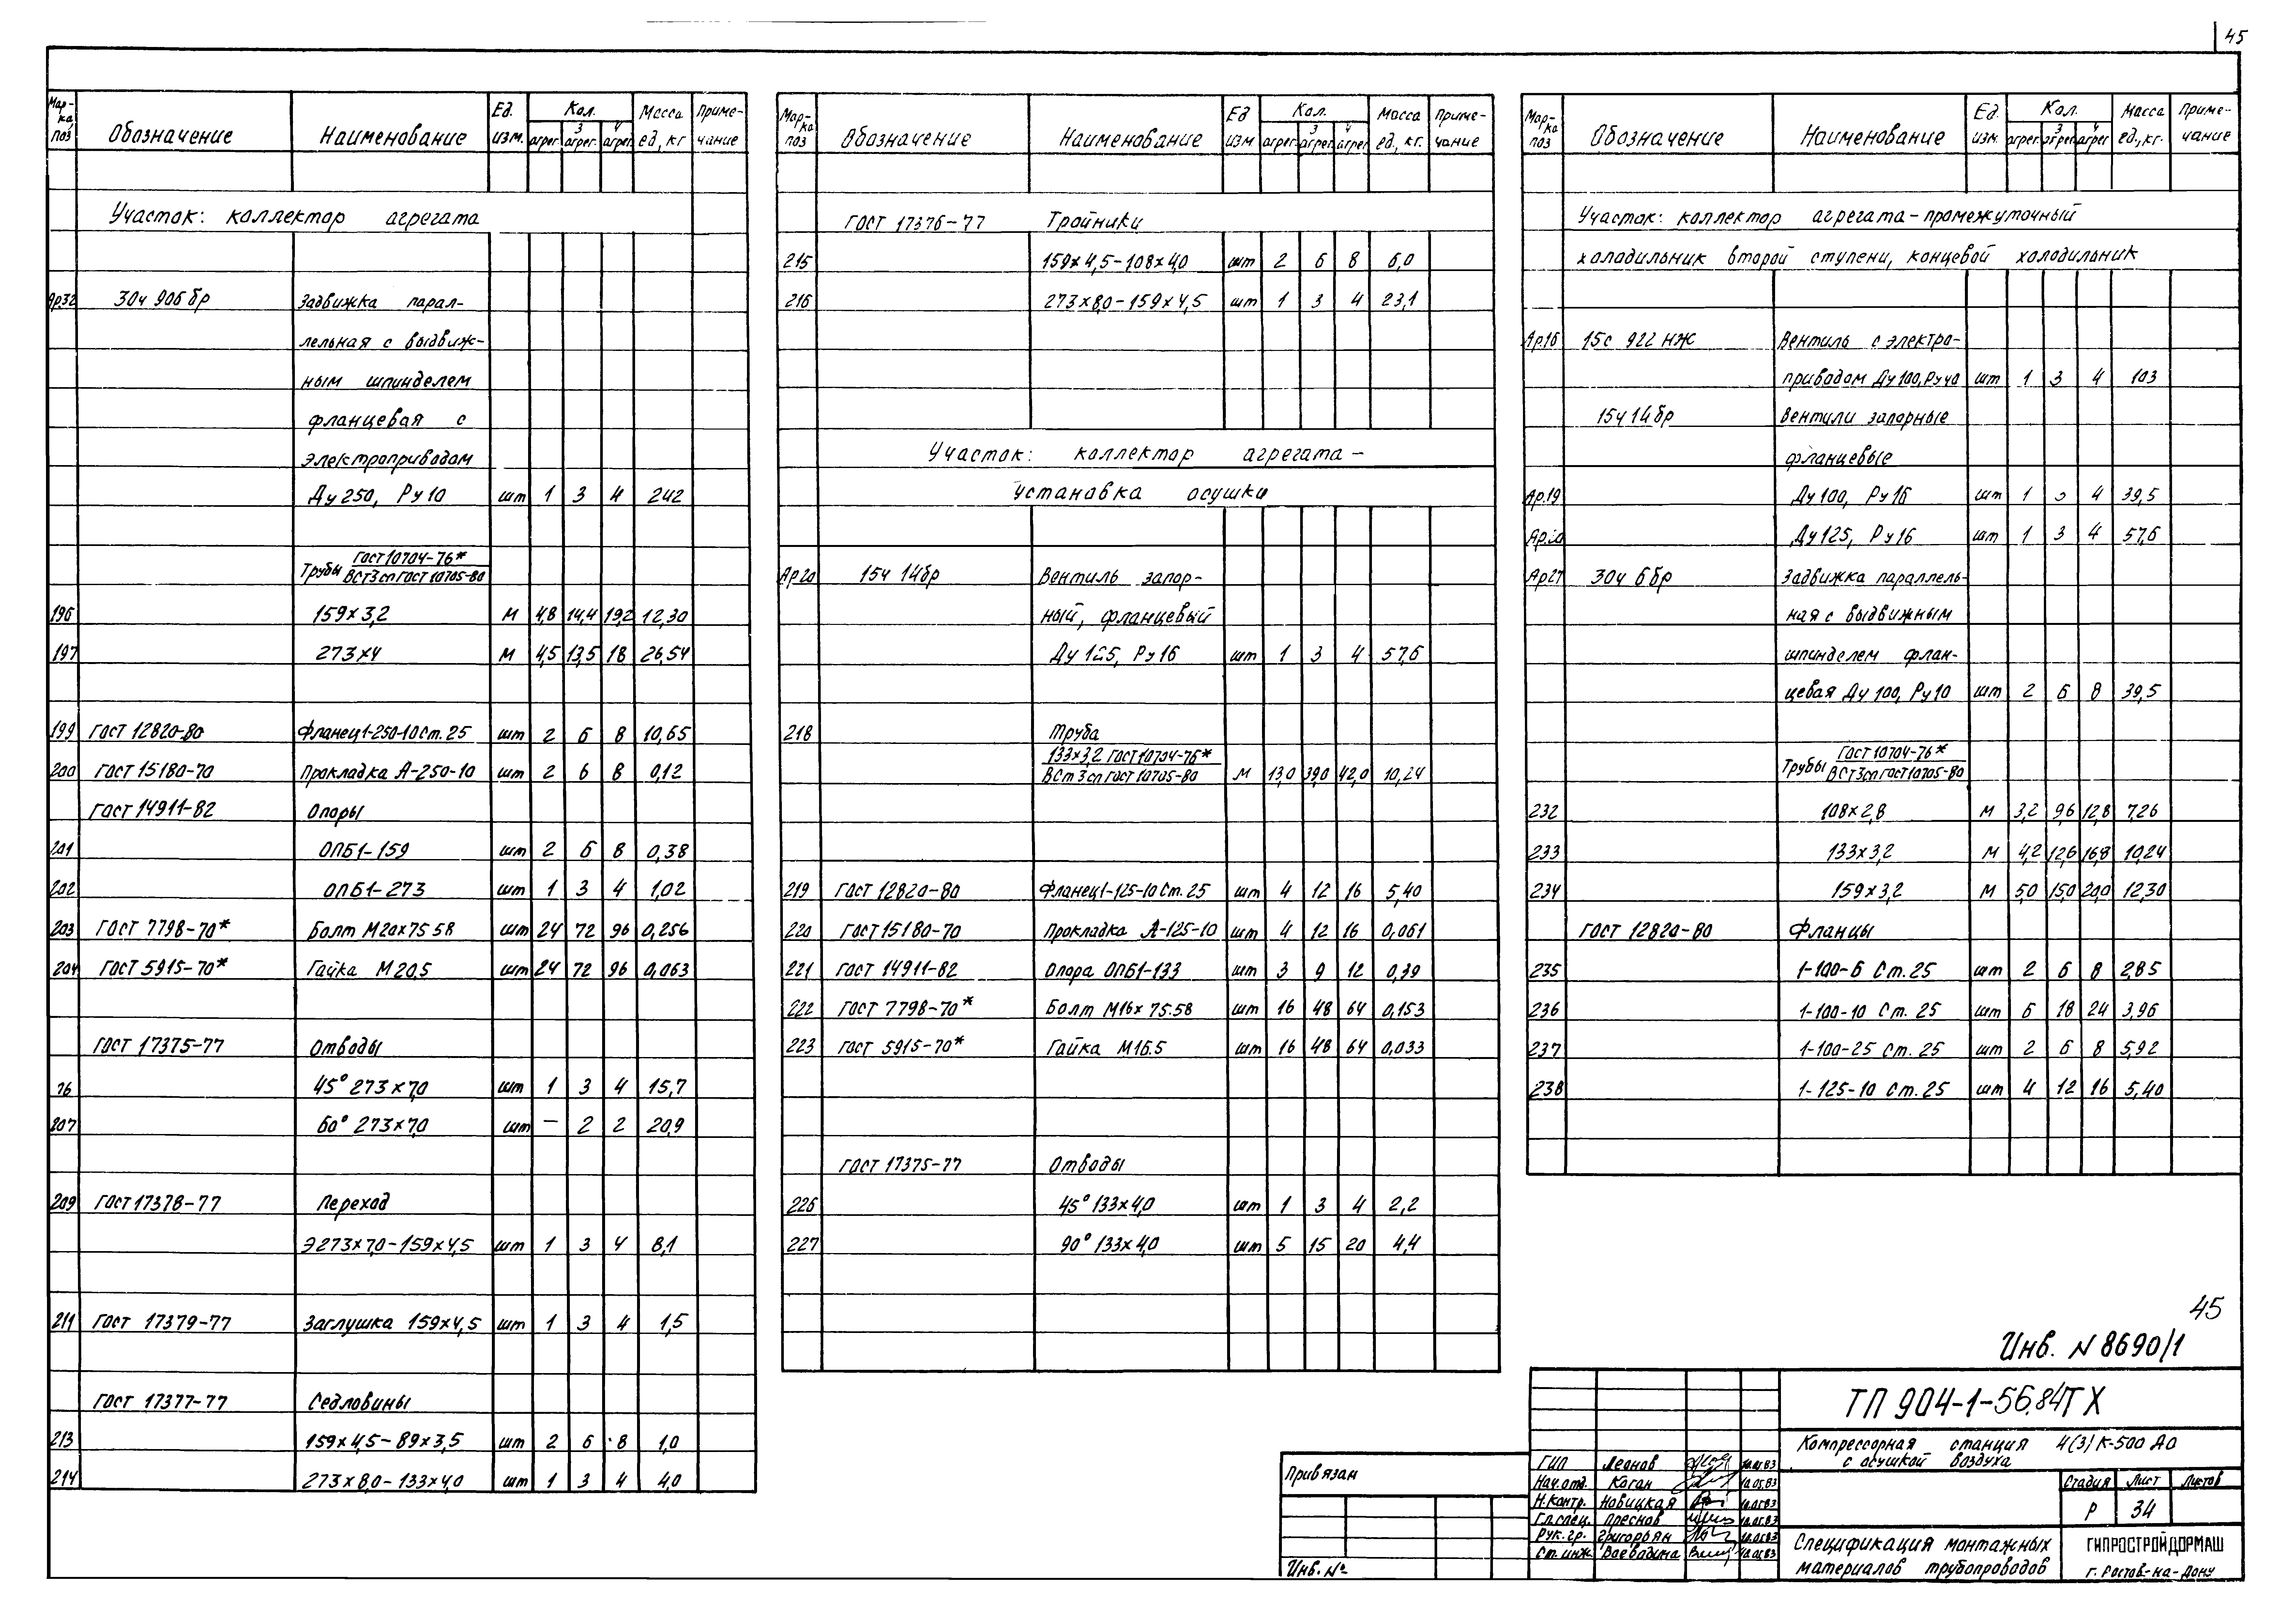 45
Мар-ка поз Обозначение Наименование Ед. изм. Кол. агрег. 3 агрег. 4 агрег. Масса ед., кг Приме-чание
Участок: коллектор агрегата
Ар32 30ч 906 бр Задвижка парал-
лельная с выдвиж-
ным шпинделем
фланцевая с
электроприводом
Ду 250, Ру 10 шт 1 3 4 242
Трубы ГОСТ 10704-76* / ВСт3сп ГОСТ 10705-80
196 159×3,2 М 4,8 14,4 19,2 12,30
197 273×4 М 4,5 13,5 18 26,54
199 ГОСТ 12820-80 Фланец 1-250-10 Ст. 25 шт 2 6 8 10,65
200 ГОСТ 15180-70 Прокладка А-250-10 шт 2 6 8 0,12
ГОСТ 14911-82 Опоры
201 ОПБ1-159 шт 2 6 8 0,38
202 ОПБ1-273 шт 1 3 4 1,02
203 ГОСТ 7798-70* Болт М20×75 58 шт 24 72 96 0,256
204 ГОСТ 5915-70* Гайка М 20,5 шт 24 72 96 0,063
ГОСТ 17375-77 Отводы
76 45° 273×7,0 шт 1 3 4 15,7
207 60° 273×7,0 шт — 2 2 20,9
209 ГОСТ 17378-77 Переход
Э 273×7,0-159×4,5 шт 1 3 4 8,1
211 ГОСТ 17379-77 Заглушка 159×4,5 шт 1 3 4 1,5
ГОСТ 17377-77 Седловины
213 159×4,5-89×3,5 шт 2 6 8 1,0
214 273×8,0-133×4,0 шт 1 3 4 4,0
Мар-ка поз Обозначение Наименование Ед изм Кол. агрег. 3 агрег. 4 агрег Масса ед., кг. Приме-чание
ГОСТ 17376-77 Тройники
215 159×4,5-108×4,0 шт 2 6 8 6,0
216 273×8,0-159×4,5 шт 1 3 4 23,1
Участок: коллектор агрегата-
установка осушки
Ар20 15ч 14бр Вентиль запор-
ный, фланцевый
Ду 125, Ру 16 шт 1 3 4 57,6
218 Труба
133×3,2 ГОСТ 10704-76* / ВСт 3сп ГОСТ 10705-80 М 13,0 39,0 42,0 10,24
219 ГОСТ 12820-80 Фланец 1-125-10 Ст. 25 шт 4 12 16 5,40
220 ГОСТ 15180-70 Прокладка А-125-10 шт 4 12 16 0,061
221 ГОСТ 14911-82 Опора ОПБ1-133 шт 3 9 12 0,39
222 ГОСТ 7798-70* Болт М16×75.58 шт 16 48 64 0,153
223 ГОСТ 5915-70* Гайка М16.5 шт 16 48 64 0,033
ГОСТ 17375-77 Отводы
226 45° 133×4,0 шт 1 3 4 2,2
227 90° 133×4,0 шт 5 15 20 4,4
Мар-ка поз Обозначение Наименование Ед. изм. Кол. агрег. 3 агрег. 4 агрег Масса ед., кг. Приме-чание
Участок: коллектор агрегата-промежуточный
холодильник второй ступени, концевой холодильник
Ар16 15с 922 нж Вентиль с электро-
приводом Ду 100, Ру 40 шт 1 3 4 103
15ч 14бр Вентили запорные
фланцевые
Ар19 Ду 100, Ру 16 шт 1 3 4 39,5
Ар20 Ду 125, Ру 16 шт 1 3 4 57,6
Ар27 30ч 6 бр Задвижка параллель-
ная с выдвижным
шпинделем флан-
цевая Ду 100, Ру 10 шт 2 6 8 39,5
Трубы ГОСТ 10704-76* / ВСт3сп ГОСТ 10705-80
232 108×2,8 М 3,2 9,6 12,8 7,26
233 133×3,2 М 4,2 12,6 16,8 10,24
234 159×3,2 М 5,0 15,0 20,0 12,30
ГОСТ 12820-80 Фланцы
235 1-100-6 Ст. 25 шт 2 6 8 2,85
236 1-100-10 Ст. 25 шт 6 18 24 3,96
237 1-100-25 Ст. 25 шт 2 6 8 5,92
238 1-125-10 Ст. 25 шт 4 12 16 5,40
45
Инв. N 8690/1
ТП 904-1-56.84ТХ
Компрессорная станция 4(3) К-500 АО
с осушкой воздуха
Стадия Лист Листов
Р 34
Спецификация монтажных
материалов трубопроводов
ГИПРОСТРОЙДОРМАШ
г. Ростов-на-Дону
ГИП Леонов
Нач. отд. Коган
Н. контр. Новицкая
Гл. спец. Преснов
Рук. гр. Григорьян
Ст. инж. Воеводина
Привязан
Инв. №